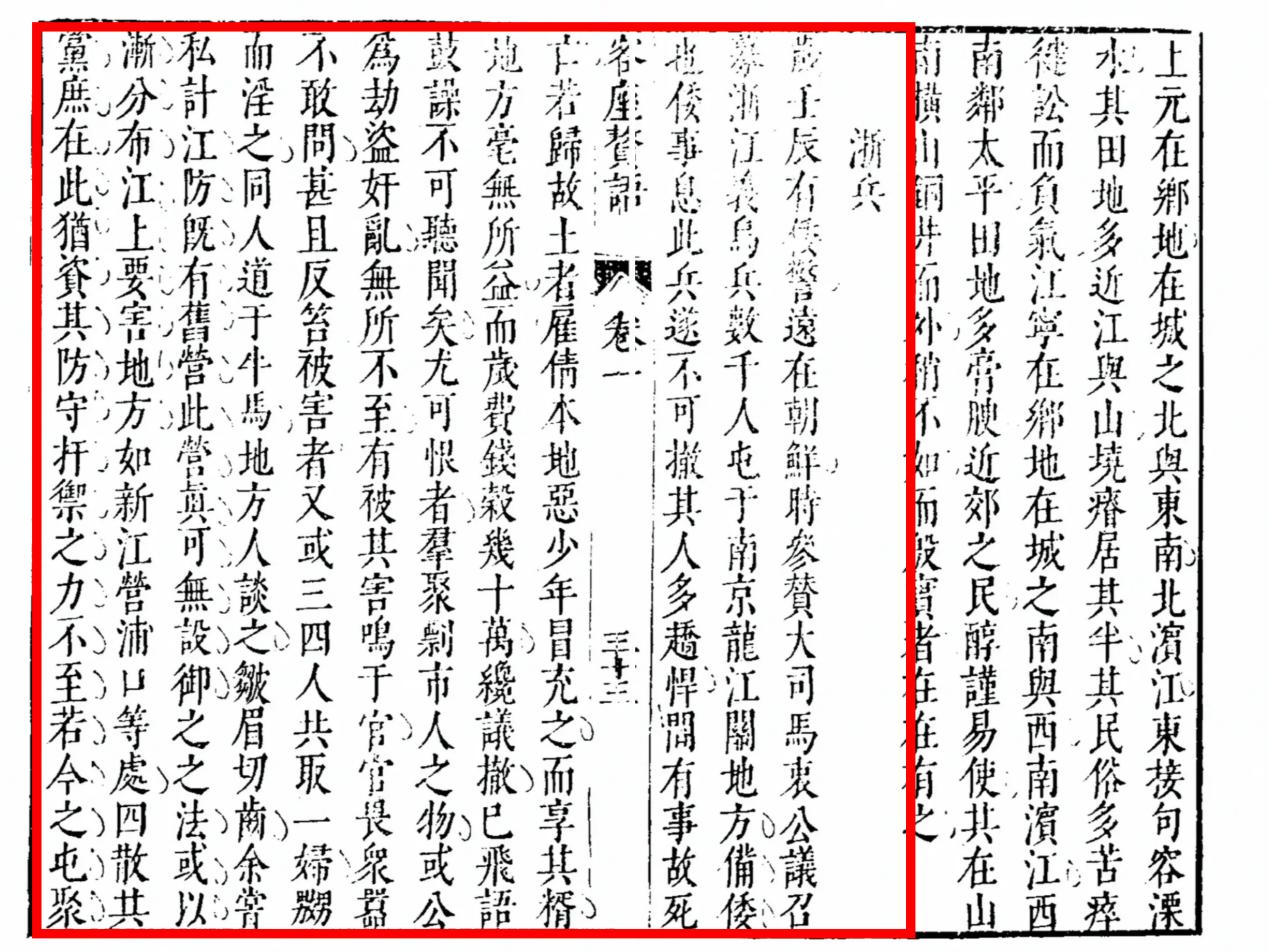 上元在鄉地在城之北與東南北濱江東接句容溧
水其田地多近江與山墝瘠居其半其民俗多苦瘁
健訟而負氣江寧在鄉地在城之南與西南濱江西
南鄰太平田地多膏腴近郊之民醇謹易使其在山
南橫山銅井而外稍不如而殷實者在在有之
浙兵
歲壬辰有倭警遠在朝鮮時參贊大司馬衷公議召
募浙江義烏兵數千人屯于南京龍江關地方備倭
也倭事息此兵遂不可撤其人多趫悍間有事故死
客座贅語
卷一
三十三
亡若歸故土者雇倩本地惡少年冒充之而享其糈
地方毫無所益而歲費錢穀幾十萬纔議撤巳飛語
鼓譟不可聽聞矣尤可恨者羣聚剽市人之物或公
為劫盜奸亂無所不至有被其害鳴于官官畏衆囂
不敢問甚且反笞被害者又或三四人共取一婦嬲
而淫之同人道于牛馬地方人談之皺眉切齒余嘗
私計江防旣有舊營此營眞可無設御之之法或以
漸分布江上要害地方如新江營浦口等處四散其
黨庶在此猶資其防守扞禦之力不至若今之屯聚